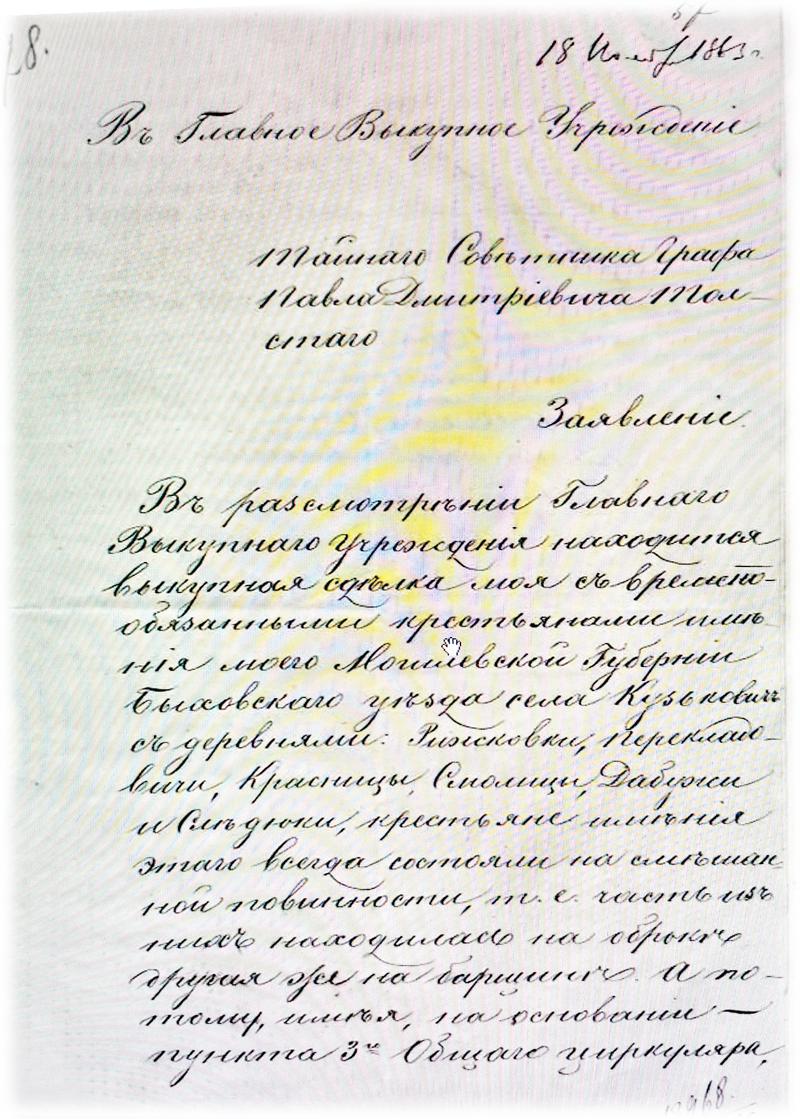 28.
18 Ноябр 1863 г.
Въ Главное Выкупное Учрежденіе
Тайнаго Совѣтника Графа
Павла Дмитріевича Тол-
стаго
Заявленіе.
Въ разсмотрѣніи Главнаго
Выкупнаго Учрежденія находится
выкупная сдѣлка моя съ временно-
обязанными крестьянами имѣ-
нія моего Могилевской Губерніи
Быховскаго уѣзда села Кузьковичъ
съ деревнями: Рижковки, Перекладо-
вичи, Красницы, Смолицы, Дабужи
и Смѣдюки, крестьяне имѣнія
этаго всегда состояли на смѣшан-
ной повинности, т. е. часть изъ
нихъ находилась на оброкѣ
другая же на барщинѣ. А по-
тому, имѣя, на основаніи —
пункта 3го Общаго циркуляра,